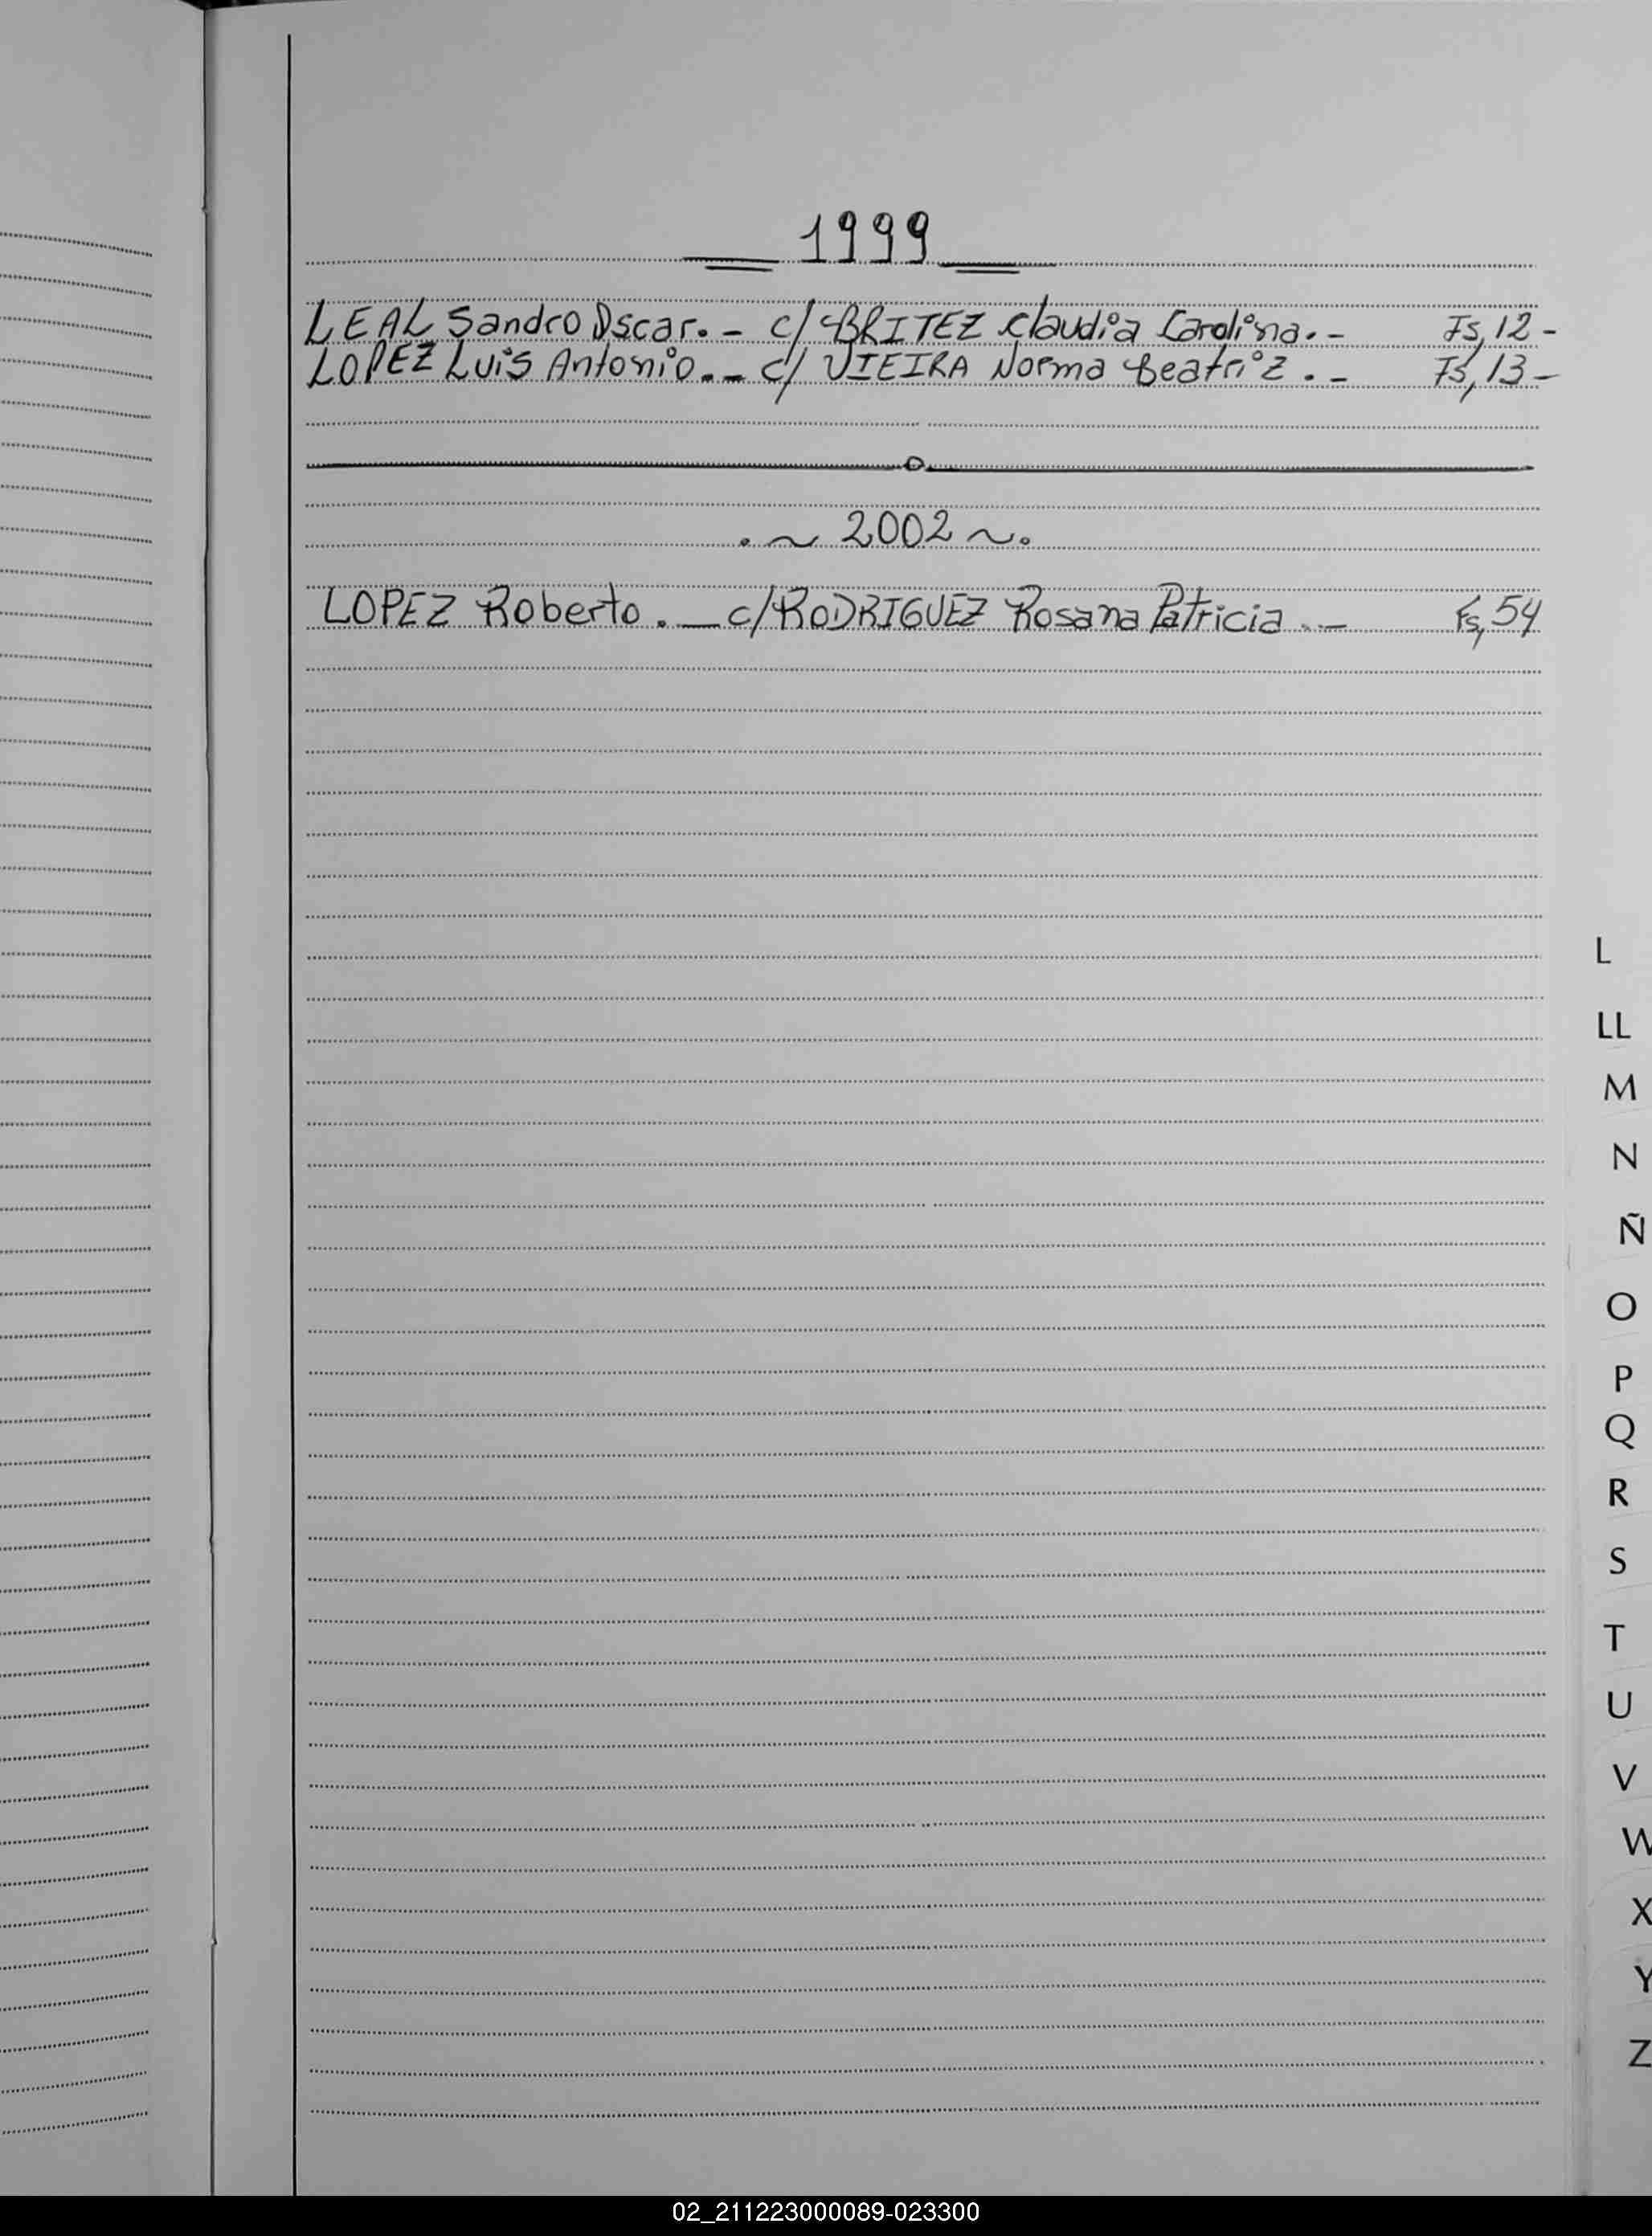 1999
LEAL Sandro Oscar. - c/ BRITEZ Claudia Carolina. - Fs, 12 -
LOPEZ Luis Antonio. - c/ VIEIRA Norma Beatriz. - Fs, 13 -
. ~ 2002 ~ .
LOPEZ Roberto. — c/ RODRIGUEZ Rosana Patricia. - Fs, 54
L
LL
M
N
Ñ
O
P
Q
R
S
T
U
V
W
X
Y
Z
02_211223000089-023300